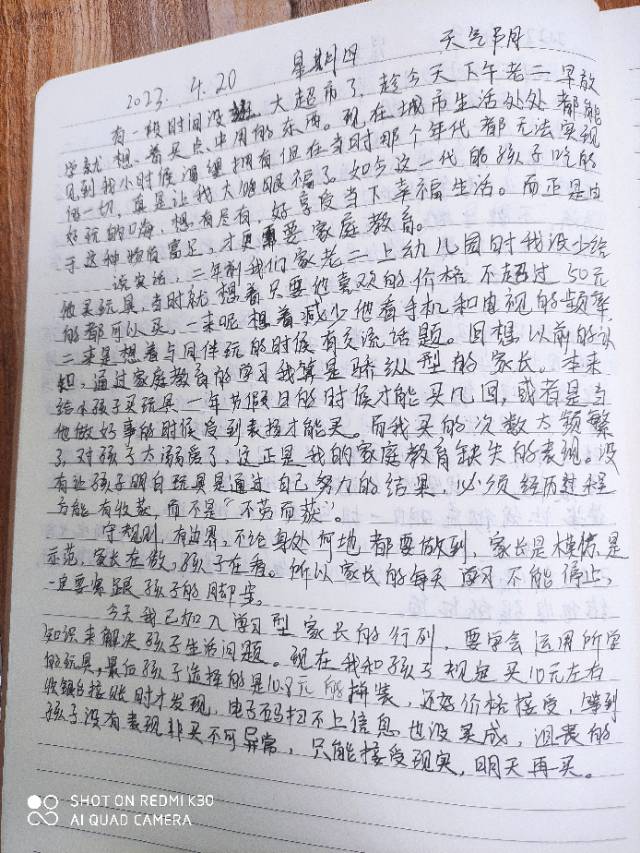 2023. 4.20 星期四 天气节月
有一段时间没逛大超市了，趁今天下午老二早放
学就想着买点中用的东西。现在城市生活处处都能
见到我小时候渴望拥有但在当时那个年代都无法实现
但一切，真是让我大饱眼福了。如今这一代的孩子吃的
好玩的口海，想有尽有，好享受当下幸福生活。而正是由
于这种物质富足，才更重要家庭教育。
说实话，二年前我们家老二上幼儿园时我没少给
他买玩具，当时就想着只要他喜欢的价格不超过50元
的都可以买。一来呢想着减少他看手机和电视的频率
二来是想着与同伴玩的时候有交流话题。回想以前的认
知，通过家庭教育的学习我算是骄纵型的家长。本来
给小孩子买玩具一年节假日的时候才能买几回，或者是当
他做好事的时候受到表扬才能买。而我买的次数太频繁
了，对孩子太溺爱了，这正是我的家庭教育缺失的表现。没
有让孩子明白玩具是通过自己努力的结果，必须经历过程
方能有收获，而不是“不劳而获”。
守规则，有边界，不论身处何地都要做到，家长是模仿是
示范，家长在做，孩子在看。所以家长的每天学习不能停止，
一定要紧跟孩子的脚步。
今天我已加入学习型家长的行列，要学会运用所学
知识来解决孩子生活问题。现在我和孩子规定买10元左右
的玩具，最后孩子选择的是10.8元的拼装，还好价格接受，等到
收银台接账时才发现，电子码扫不上信息也没买成，沮丧的
孩子没有表现非买不可异常，只能接受现实，明天再买。
SHOT ON REDMI K30
AI QUAD CAMERA